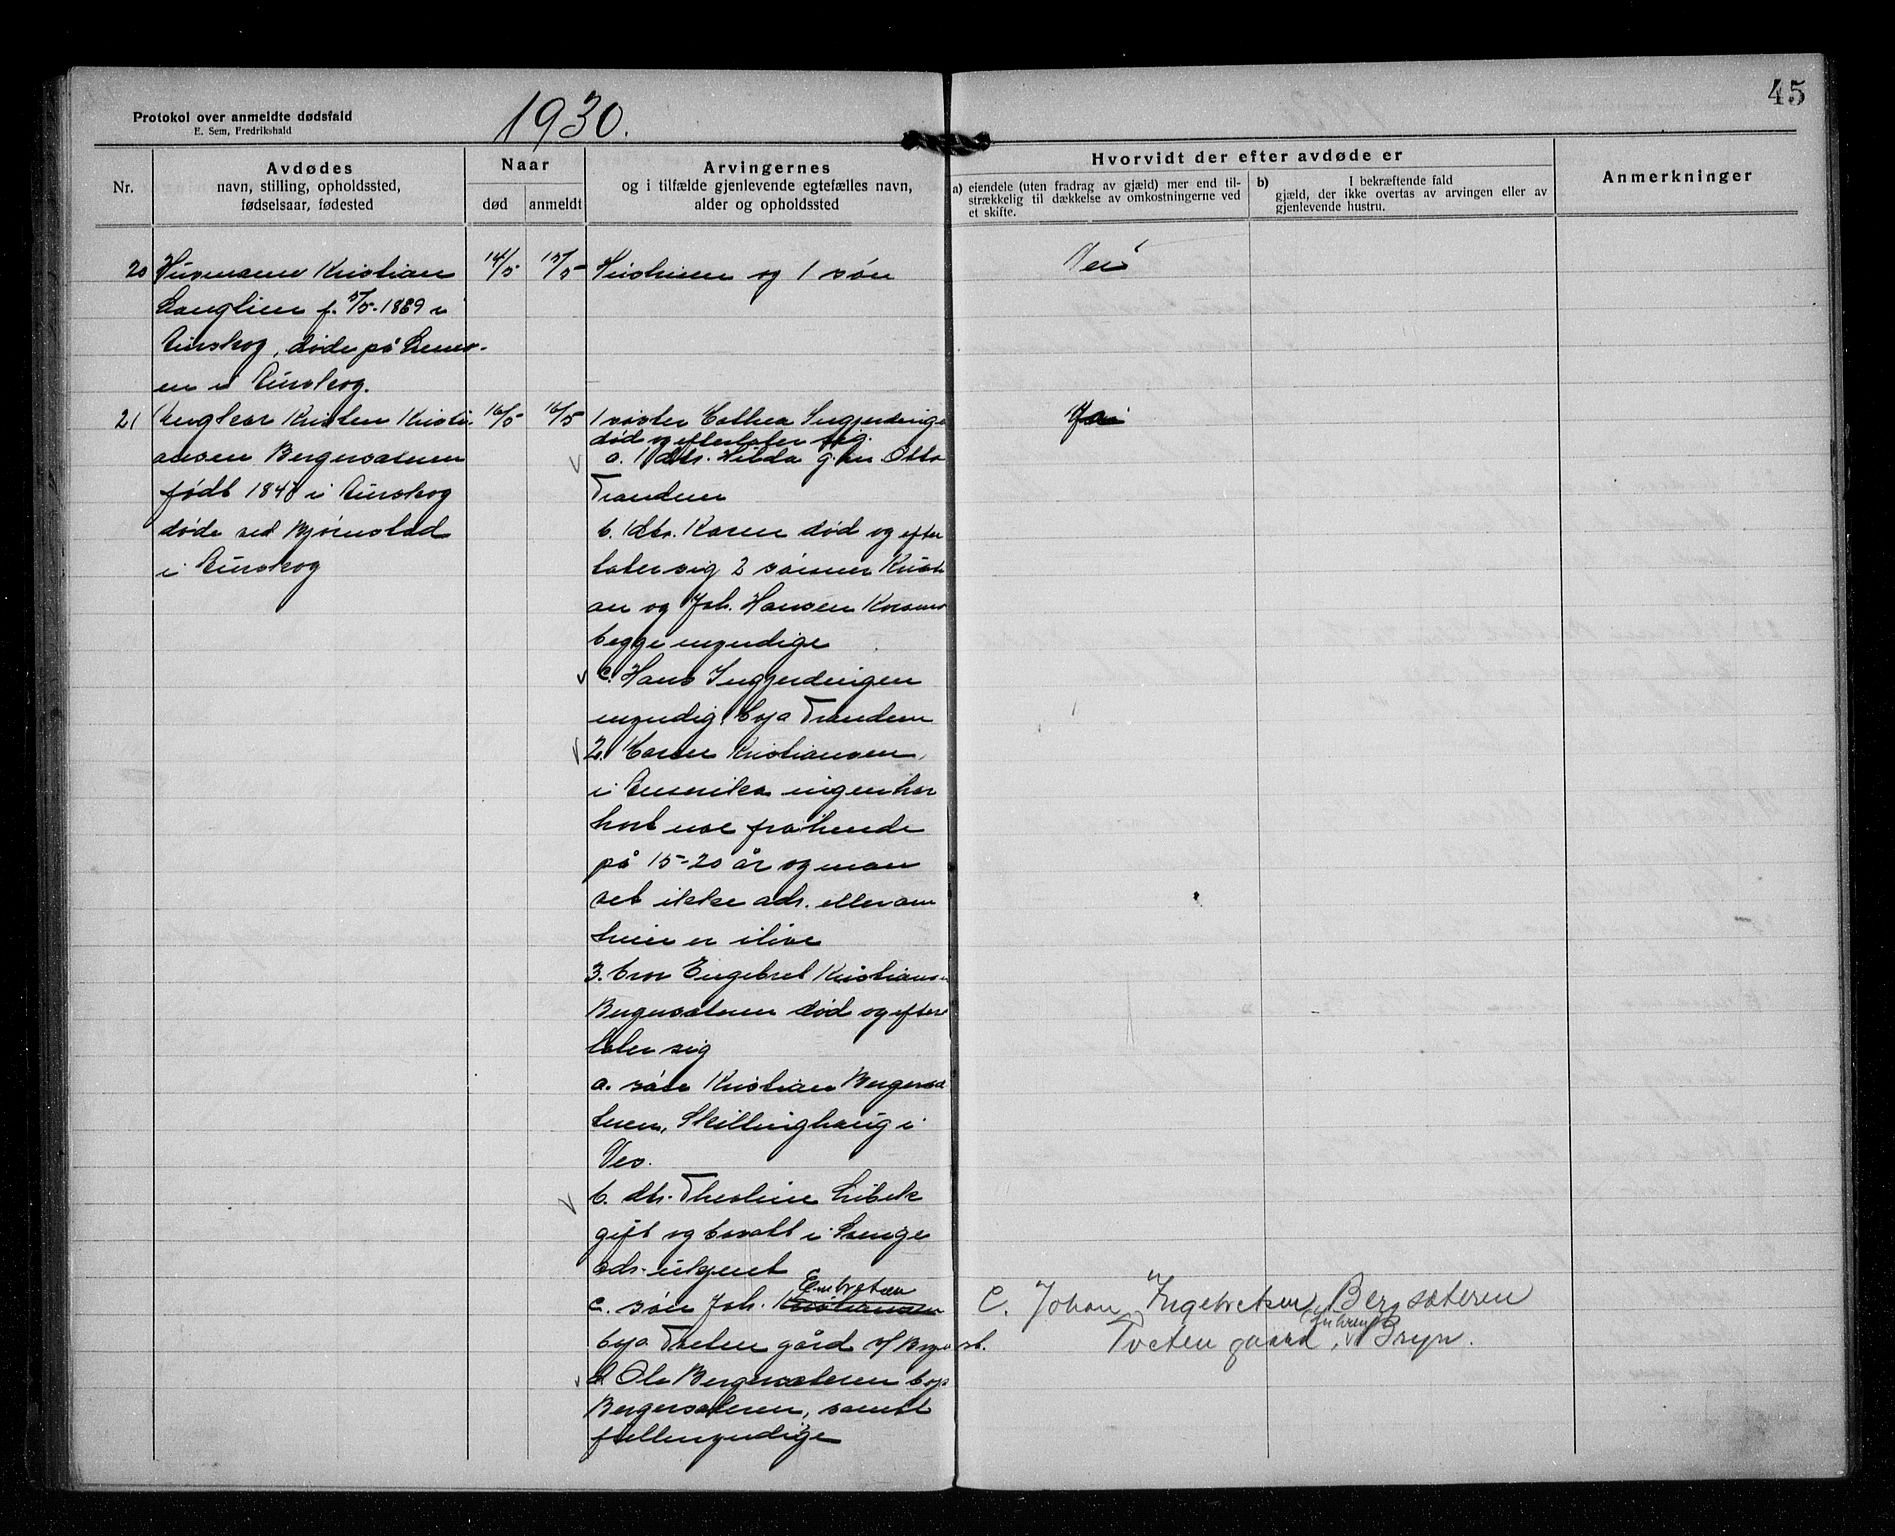 45
Protokol over anmeldte dødsfald
E. Sem, Fredrikshald
1930.
Nr.
Avdødes
navn, stilling, opholdssted,
fødselsaar, fødested
Naar
død
anmeldt
Arvingernes
og i tilfælde gjenlevende egtefælles navn,
alder og opholdssted
Hvorvidt der efter avdøde er
a) eiendele (uten fradrag av gjæld) mer end til-
strækkelig til dækkelse av omkostningerne ved
et skifte.
b) I bekræftende fald
gjæld, der ikke overtas av arvingen eller av
gjenlevende hustru.
Anmerkninger
20 Husmann Kristian
Langlien f. 5/5-1869 i
Aurskog, døde på
en i Aurskog.
14/5
15/5
og 1 søn
Nei
21 Ungkar Kristen Kristi-
ansen Bergersæteren
født 184 i Aurskog
døde ved Bjørnstad
i Aurskog
16/5
16/5
1 søster Cathea Ingjerdinge
død og efterlater sig.
a. 1 dtr. Hilda g. m. Otto
Trandem
b. 1 dtr. Karen død og efter
later sig 2 sønner Kristi
an og Joh. Hansen
begge myndige
c. Hans Ingjerdingen
myndig, bya Trandem
2. Karen Kristiansen,
i Amerika ingen har
hørt noe fra hende
på 15-20 år og man
vet ikke adr. eller om
hun er ilive
3. bror Engebret Kristianse
Bergersæteren død og efter
later sig
a. søn Kristian Bergersæ
teren, Skillinghaug i
Nes.
b. dtr. Theoline Libek
gift og bosatt i Norge
adr. ukjent
Embretsen
c. søn Joh. Kristiansen
bya Tveten gård v/ Bryn st.
d Ole Bergersæteren bya
Bergersæteren, samtl
fuldmyndige
Ja
C. Johan Ingebretsen Bergsæteren
Tveten gaard, Bryn.